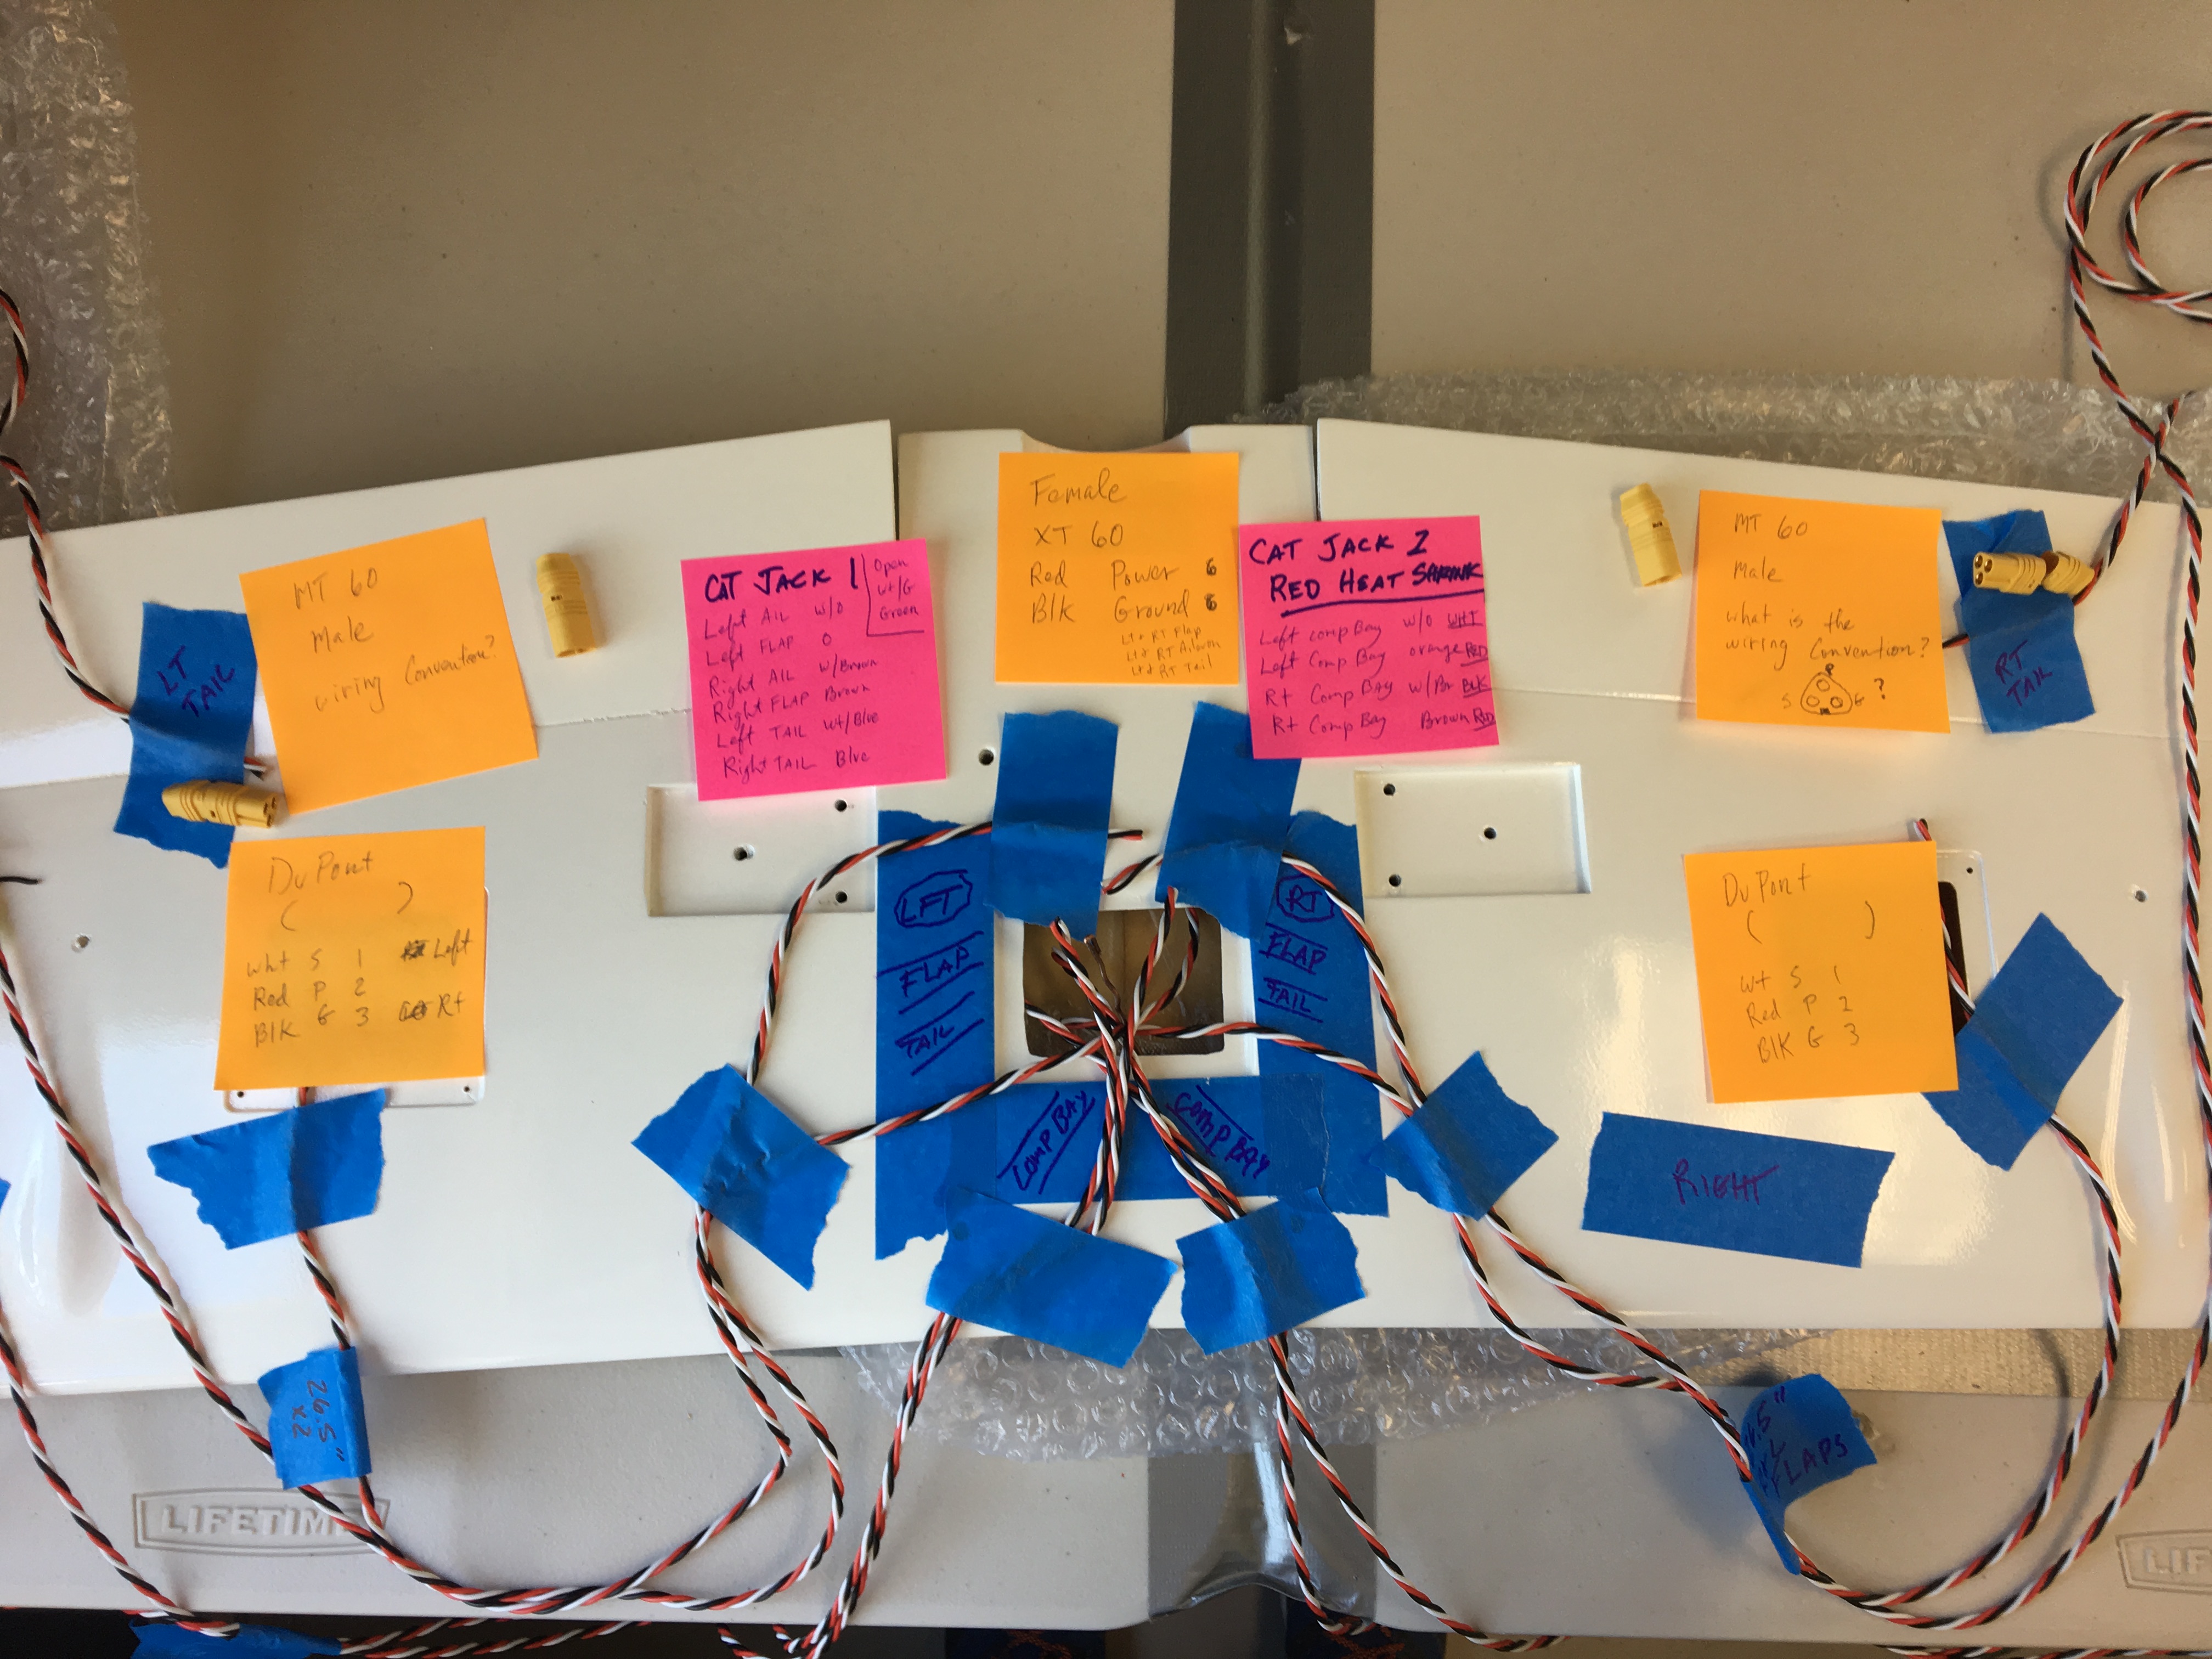 MT 60
Male
wiring Convention?
LT
TAIL
DuPont
( )
wht S 1 Left
Red P 2
Blk G 3 Rt
CAT JACK 1
Open
wt/G
Green
Left AIL w/o
Left FLAP O
Right AIL w/Brown
Right FLAP Brown
Left TAIL wt/Blue
Right TAIL Blue
Female
XT 60
Red Power 6
Blk Ground 6
Lt & RT Flap
Lt & RT Aileron
Lt & RT Tail
CAT JACK 2
RED HEAT SHRINK
Left comp Bay w/o WHT
Left Comp Bay orange RED
Rt Comp BAY w/Br BLK
Rt Comp Bay Brown RED
MT 60
Male
what is the
wiring Convention?
P
S G ?
RT
TAIL
DuPont
( )
wt S 1
Red P 2
Blk G 3
LFT
FLAP
TAIL
RT
FLAP
TAIL
COMP BAY
COMP BAY
RIGHT
26.5"
x2
FLAPS
LIFETIME
LIF